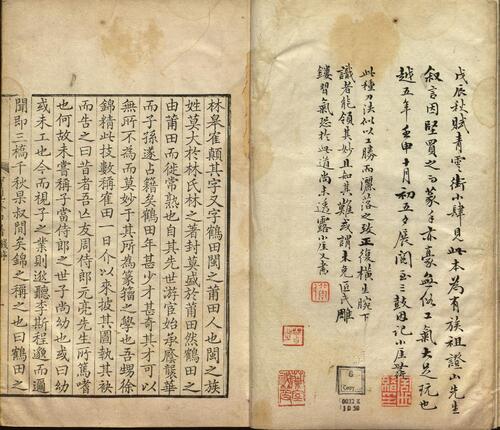 戊辰秋賦青雲街小肆見此本為有族祖證山先生
敘言因堅買之而篆手亦豪無俗工氣大足玩也
越五年壬申十月初五夕展閱至三鼓因記小崖
此種刀法似以工勝而灑落之致正復橫生腕下
識者能領其妙且知其難或謂未免匠氏雕
鏤習氣恐於此道尚未透露小崖又書
6
Copy
林皋隺顛其字又字鶴田閩之莆田人也閩之族
姓莫大於林氏林之著封莫盛於莆田然鶴田之
由莆田而徙常熟也自其先世游宦始承廕襲華
而子孫遂占籍矣鶴田年甚少才甚奇其才可以
無所不為而莫妙于其所為篆籀之學也吾甥徐
錦精此技數稱隺田一日介以來披其圖執其袂
而告之曰昔者吾亡友周侍郎元亮先生所篤嗜
也何故未嘗稱子當侍郎之世子尚幼也或曰幼
或未工也今而視子之業則聽李斯程邈而遍
聞即三橋千秋杲叔間矣錦之稱之也曰鶴田之